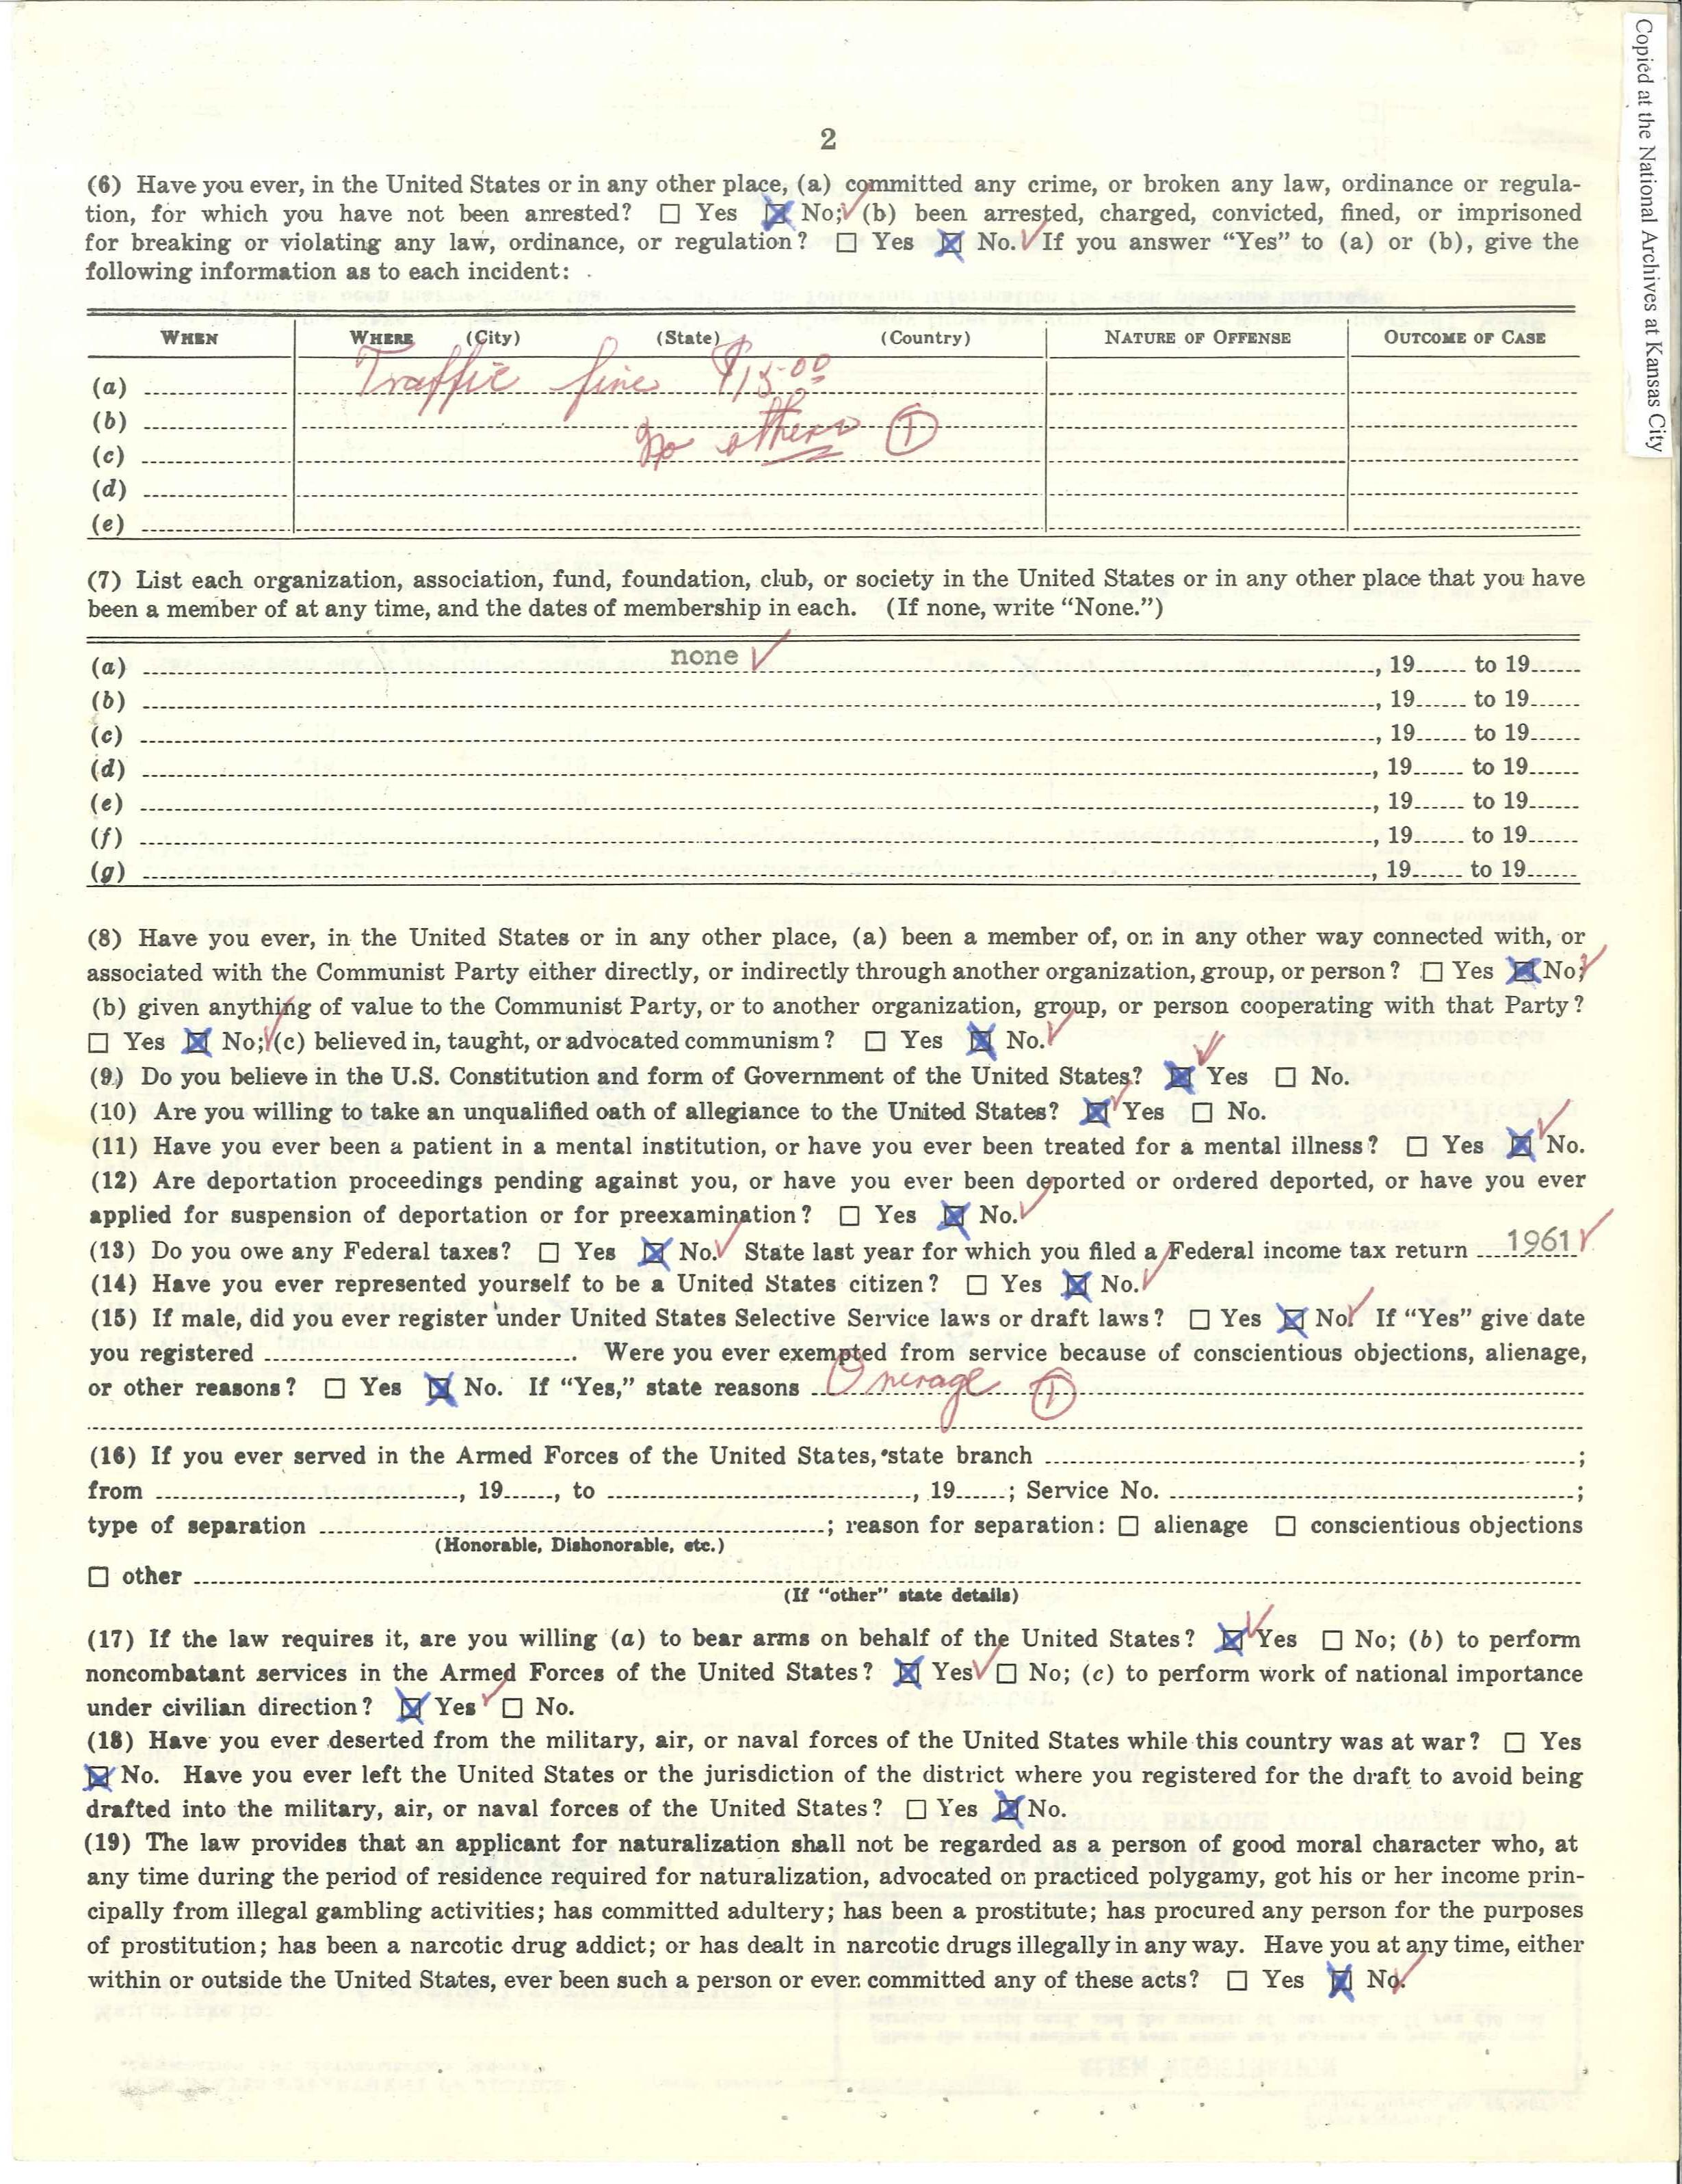 Copied at the National Archives at Kansas City
2
(6) Have you ever, in the United States or in any other place, (a) committed any crime, or broken any law, ordinance or regula-
tion, for which you have not been arrested? ☐ Yes ☒ No; ✓ (b) been arrested, charged, convicted, fined, or imprisoned
for breaking or violating any law, ordinance, or regulation? ☐ Yes ☒ No. ✓ If you answer “Yes” to (a) or (b), give the
following information as to each incident:
WHEN WHERE (City) (State) (Country) NATURE OF OFFENSE OUTCOME OF CASE
(a) Traffic fine $15.00
(b) no others ①
(c)
(d)
(e)
(7) List each organization, association, fund, foundation, club, or society in the United States or in any other place that you have
been a member of at any time, and the dates of membership in each. (If none, write “None.”)
(a) none ✓ , 19 to 19
(b) , 19 to 19
(c) , 19 to 19
(d) , 19 to 19
(e) , 19 to 19
(f) , 19 to 19
(g) , 19 to 19
(8) Have you ever, in the United States or in any other place, (a) been a member of, or in any other way connected with, or
associated with the Communist Party either directly, or indirectly through another organization, group, or person? ☐ Yes ☒ No; ✓
(b) given anything of value to the Communist Party, or to another organization, group, or person cooperating with that Party?
☐ Yes ☒ No; ✓ (c) believed in, taught, or advocated communism? ☐ Yes ☒ No. ✓
(9) Do you believe in the U.S. Constitution and form of Government of the United States? ☒ Yes ✓ ☐ No.
(10) Are you willing to take an unqualified oath of allegiance to the United States? ☒ ✓ Yes ☐ No.
(11) Have you ever been a patient in a mental institution, or have you ever been treated for a mental illness? ☐ Yes ☒ ✓ No.
(12) Are deportation proceedings pending against you, or have you ever been deported or ordered deported, or have you ever
applied for suspension of deportation or for preexamination? ☐ Yes ☒ No. ✓
(13) Do you owe any Federal taxes? ☐ Yes ☒ No. ✓ State last year for which you filed a Federal income tax return 1961 ✓
(14) Have you ever represented yourself to be a United States citizen? ☐ Yes ☒ No. ✓
(15) If male, did you ever register under United States Selective Service laws or draft laws? ☐ Yes ☒ No. ✓ If “Yes” give date
you registered . Were you ever exempted from service because of conscientious objections, alienage,
or other reasons? ☐ Yes ☒ No. If “Yes,” state reasons Overage ①
(16) If you ever served in the Armed Forces of the United States, state branch ;
from , 19 , to , 19 ; Service No. ;
type of separation ; reason for separation: ☐ alienage ☐ conscientious objections
(Honorable, Dishonorable, etc.)
☐ other
(If “other” state details)
(17) If the law requires it, are you willing (a) to bear arms on behalf of the United States? ☒ ✓ Yes ☐ No; (b) to perform
noncombatant services in the Armed Forces of the United States? ☒ Yes ✓ ☐ No; (c) to perform work of national importance
under civilian direction? ☒ Yes ✓ ☐ No.
(18) Have you ever deserted from the military, air, or naval forces of the United States while this country was at war? ☐ Yes
☒ No. Have you ever left the United States or the jurisdiction of the district where you registered for the draft to avoid being
drafted into the military, air, or naval forces of the United States? ☐ Yes ☒ No.
(19) The law provides that an applicant for naturalization shall not be regarded as a person of good moral character who, at
any time during the period of residence required for naturalization, advocated or practiced polygamy, got his or her income prin-
cipally from illegal gambling activities; has committed adultery; has been a prostitute; has procured any person for the purposes
of prostitution; has been a narcotic drug addict; or has dealt in narcotic drugs illegally in any way. Have you at any time, either
within or outside the United States, ever been such a person or ever committed any of these acts? ☐ Yes ☒ No. ✓